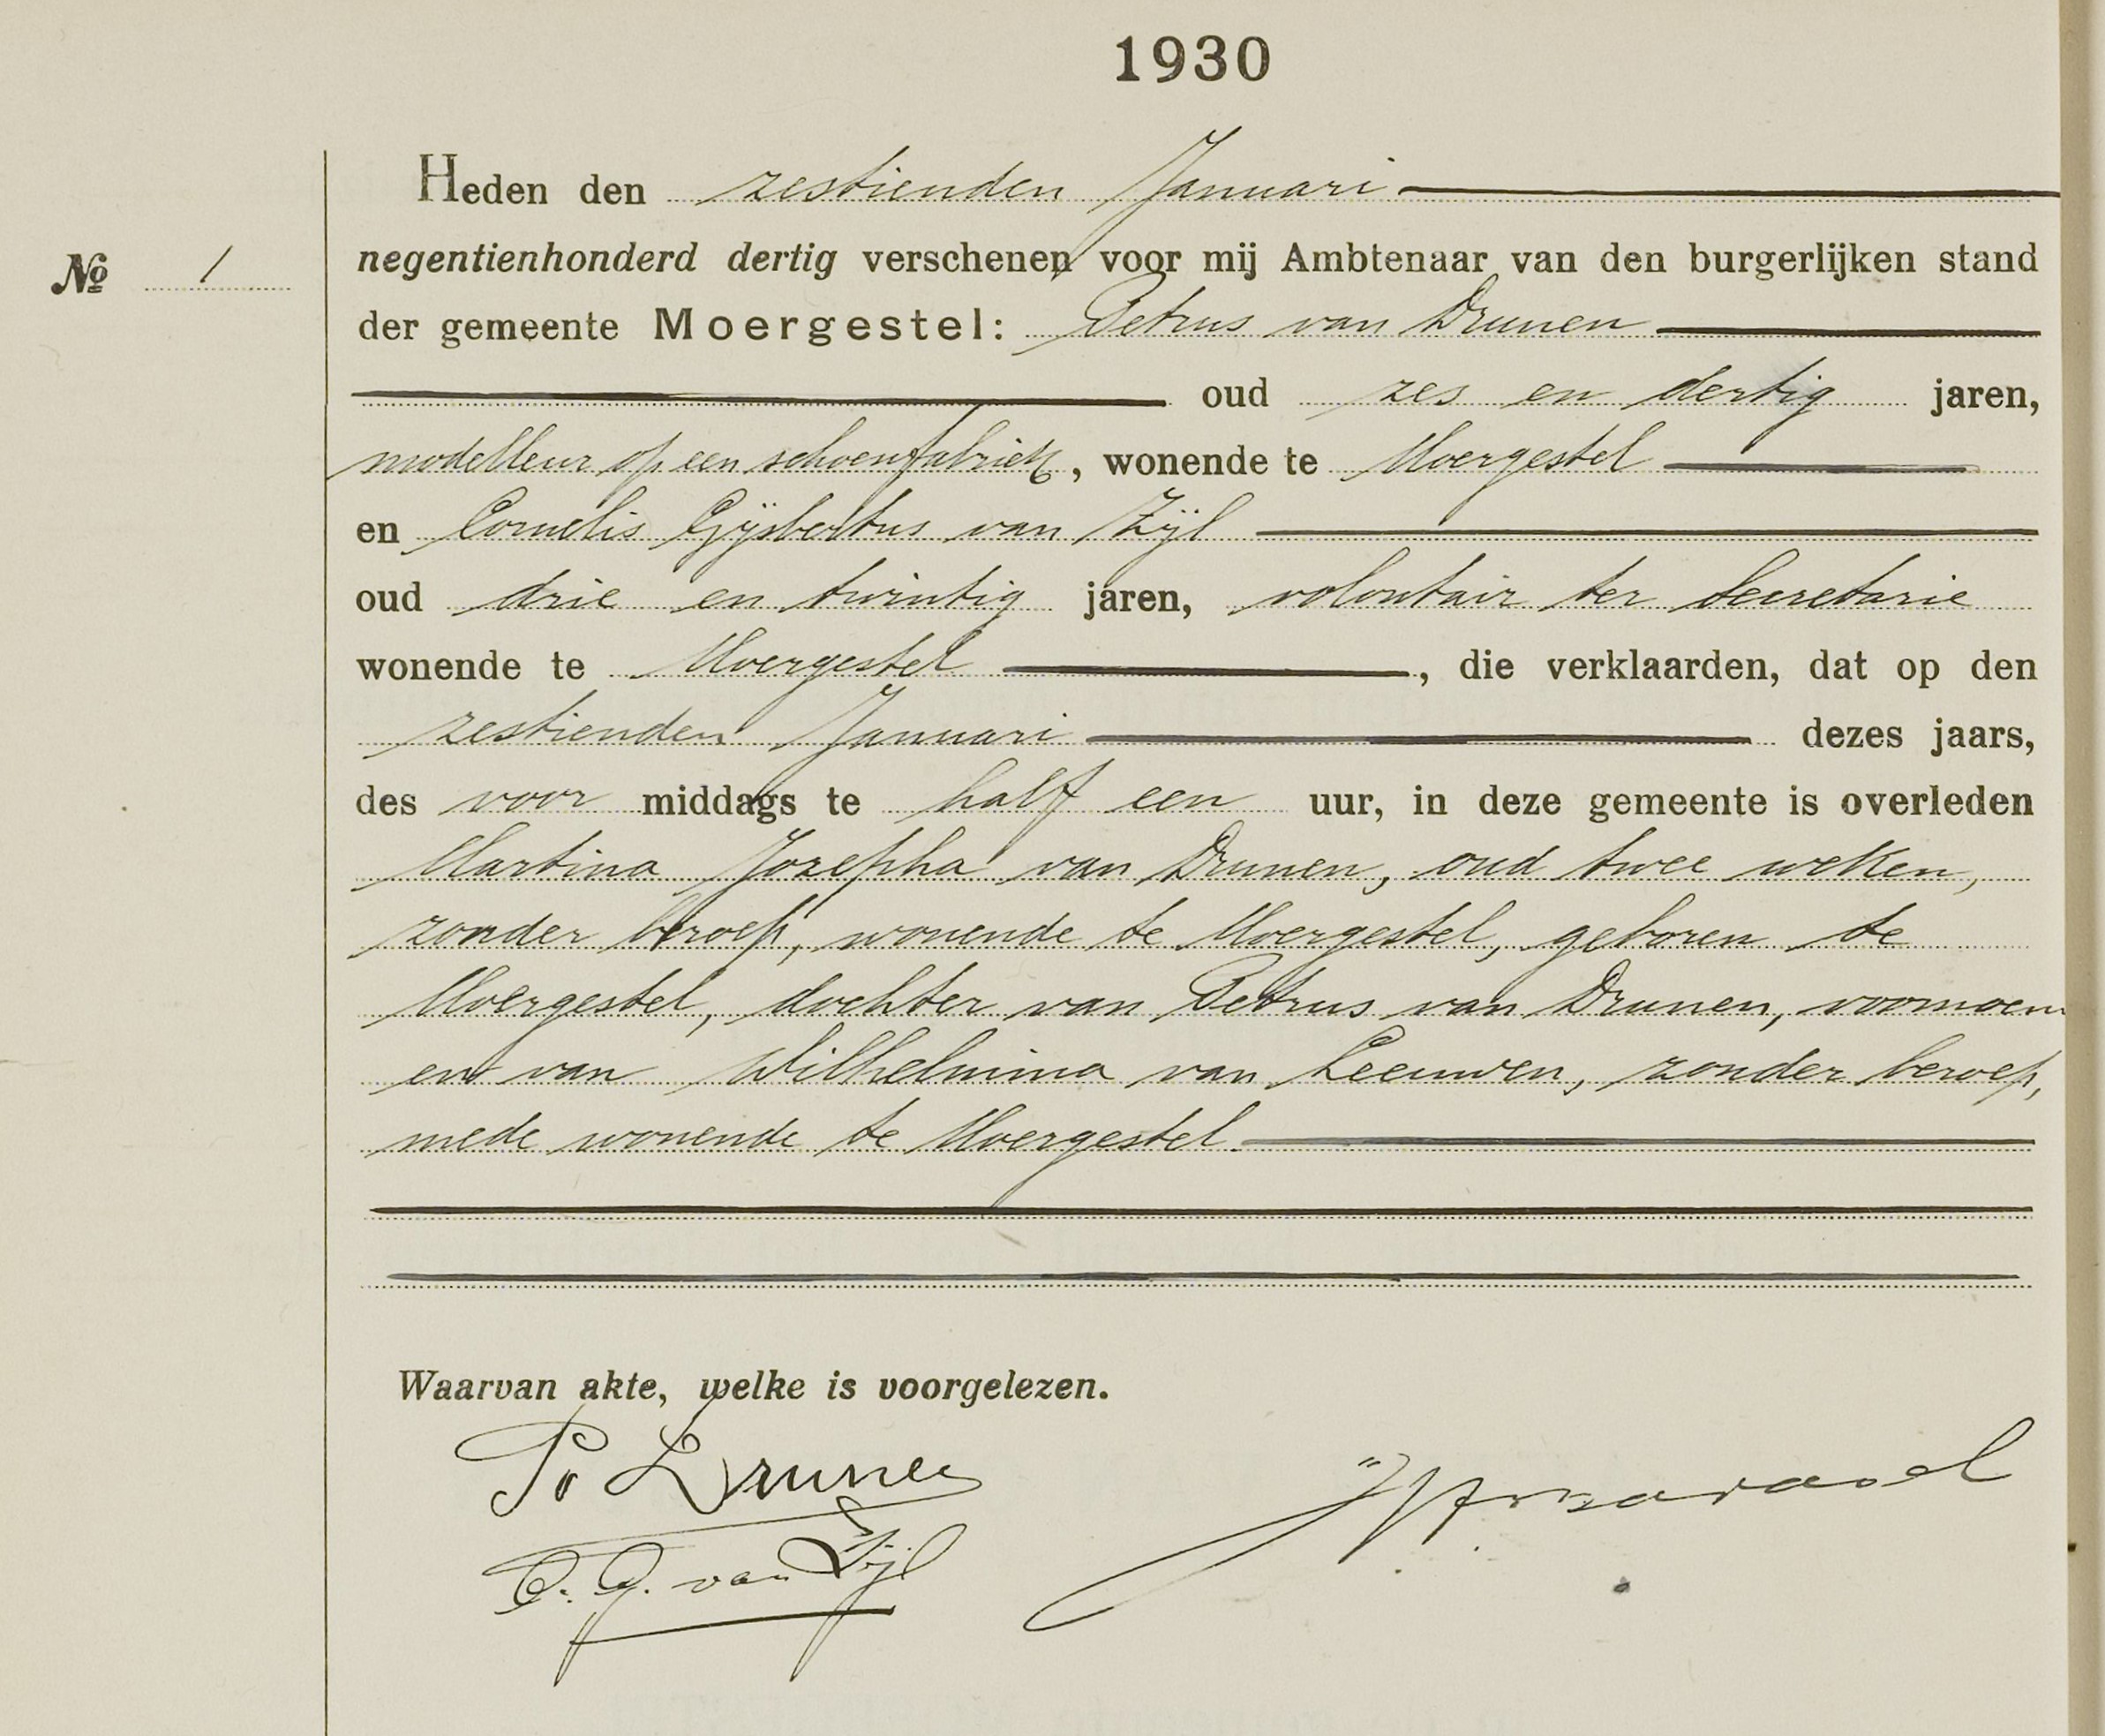 1930
Heden den zestienden Januari
negentienhonderd dertig verschenen voor mij Ambtenaar van den burgerlijken stand
No 1
der gemeente Moergestel: Petrus van Drunen
oud zes en dertig jaren,
modelleur op een schoenfabriek, wonende te Moergestel
en Cornelis Gijsbertus van Zijl
oud drie en twintig jaren, volontair ter secretarie
wonende te Moergestel, die verklaarden, dat op den
zestienden Januari dezes jaars,
des voor middags te half een uur, in deze gemeente is overleden
Martina Jozepha van Drunen, oud twee weken,
zonder beroep, wonende te Moergestel, geboren te
Moergestel, dochter van Petrus van Drunen, voornoemd
en van Wilhelmina van Leeuwen, zonder beroep,
mede wonende te Moergestel.
Waarvan akte, welke is voorgelezen.
P v Drunen
C. G. van Zijl